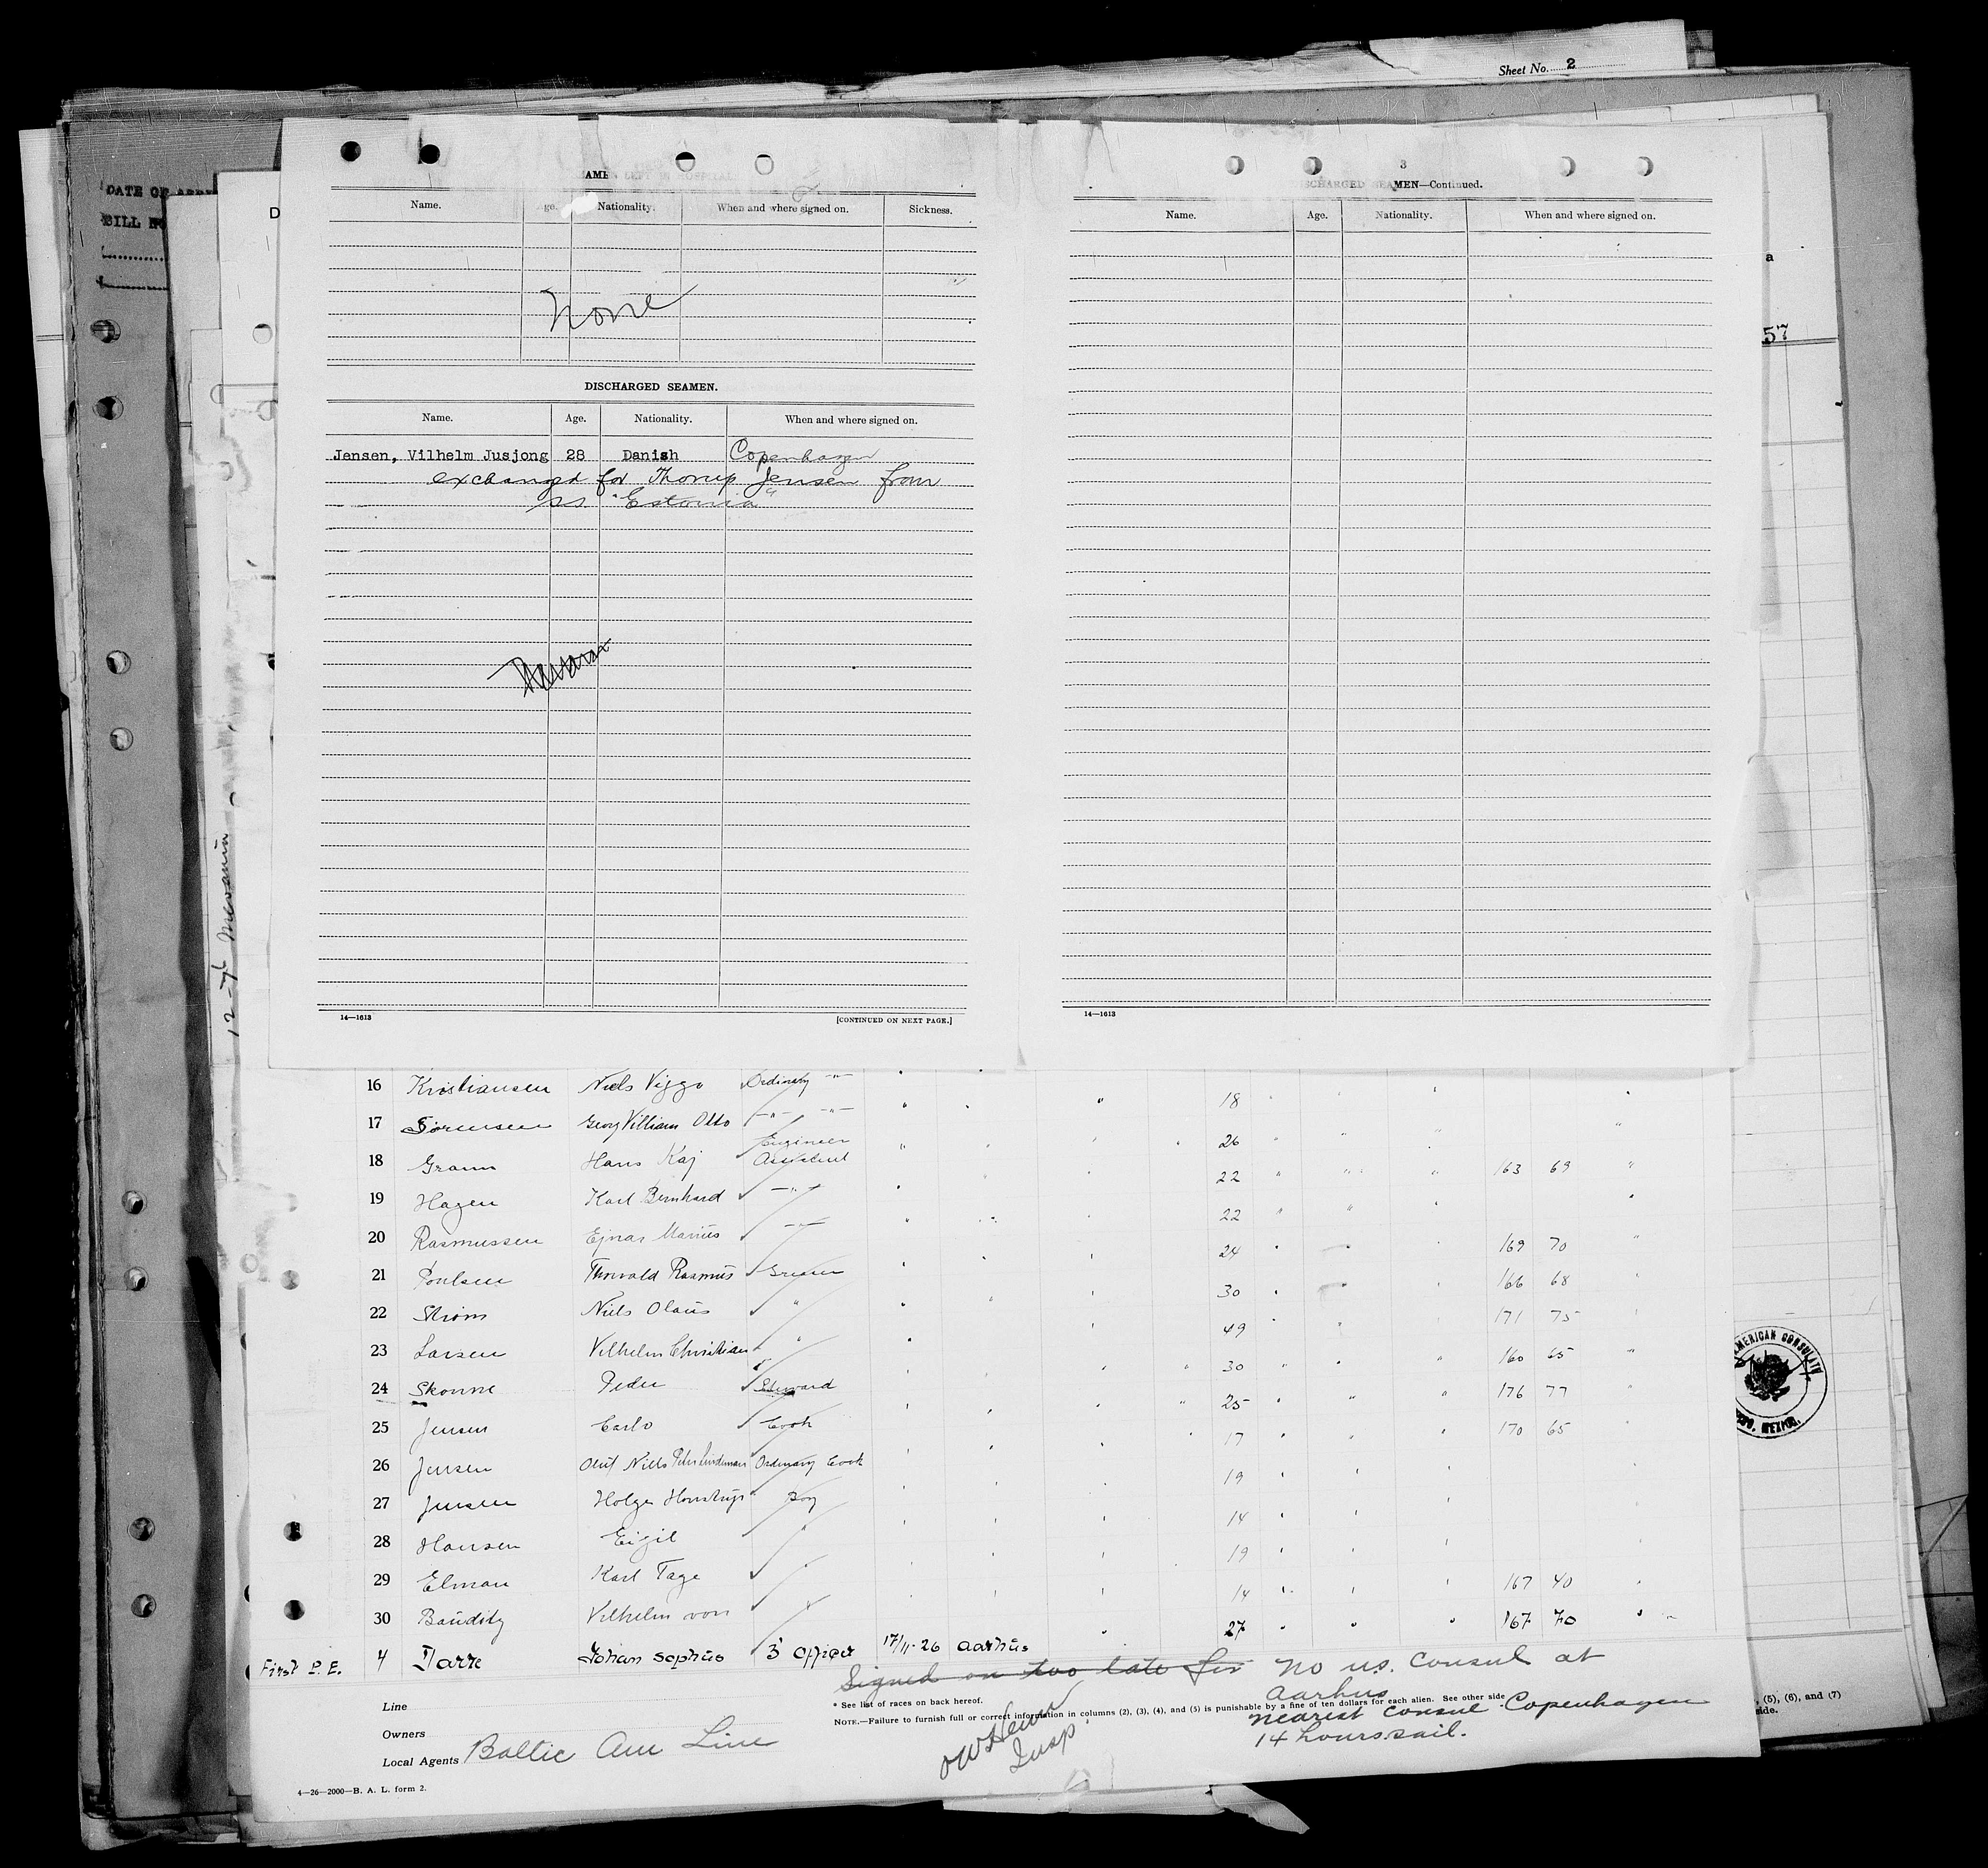 Sheet No. 2
DATE OF
BILL
D
AMEN LEFT IN HOSPITAL
Name. Age. Nationality. When and where signed on. Sickness.
None
DISCHARGED SEAMEN.
Name. Age. Nationality. When and where signed on.
Jensen, Vilhelm Jusjong 28 Danish Copenhagen
exchanged for Thorup Jensen from
ss. "Estonia"
14—1613 [CONTINUED ON NEXT PAGE.]
3
DISCHARGED SEAMEN—Continued.
Name. Age. Nationality. When and where signed on.
14—1613
a
57
16 Kristiansen Niels Viggo Ordinary -"- " " " 18 " " " "
17 Sörensen Georg Villiam Otto -"- -"- " " " " 26 " " " "
18 Gramm Hans Kaj Engineer Assistent " " " " 22 " " " 163 69 "
19 Hagen Karl Bernhard -"- " " " 22 " " " "
20 Rasmussen Ejnar Marius -"- " " " 24 " " " 169 70 "
21 Poulsen Thorvald Rasmus Greaser " " " 30 " " " 166 68 "
22 Ström Niels Olaus " " " " 49 " " " 171 75 "
23 Larsen Vilhelm Christian " " " " " 30 " " " 160 65 "
24 Skonne Peder Steward " " " " 25 " " " 176 77 "
25 Jensen Carlo Cook " " " " 17 " " " 170 65 "
26 Jensen Oluf Niels Peter Lindeman Ordinary Cook " " " 19 " " "
27 Jensen Holger Honstrup Boy " " " 14 " " " "
28 Hansen Eigil " " " " 19 " " "
29 Elman Karl Tage " " " " 14 " " " 167 40 "
30 Baudity Vilhelm von " " 27 " " " 167 70 " "
First P. E. 4 Darre Johan Sophus 3' Officer 17/11-26 Aarhus
Signed on too late for no U.S. Consul at
Aarhus
nearest consul Copenhagen
14 hours sail.
Line
Owners
Local Agents Baltic Am Line
* See list of races on back hereof.
NOTE.—Failure to furnish full or correct information in columns (2), (3), (4), and (5) is punishable by a fine of ten dollars for each alien. See other side
Insp.
4—26—2000—B. A. L. form 2.
, (5), (6), and (7)
side.
AMERICAN CONSULATE
MEXICO.